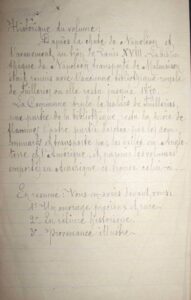 Historique du volume.
D'après la chute de Napoléon et
l'avènement au trône de Louis XVIII la biblio
thèque de Napoléon transportée de Malmaison
était réunie avec l'ancienne bibliothèque royale
de Tuileries où elle resta jusqu'à 1870.
La Commune brûla le palais de Tuileries,
une partie de la bibliothèque
flammes l'autre partie par les com
munards et transportée par les alliés en Angle
terre et l'Amérique, et parmi
emporté en Amérique se trouve celui-ci.
En resumé. Vous avez devant vous
1° Un ouvrage rare
2° En reliure historique.
3° Provenance illustre